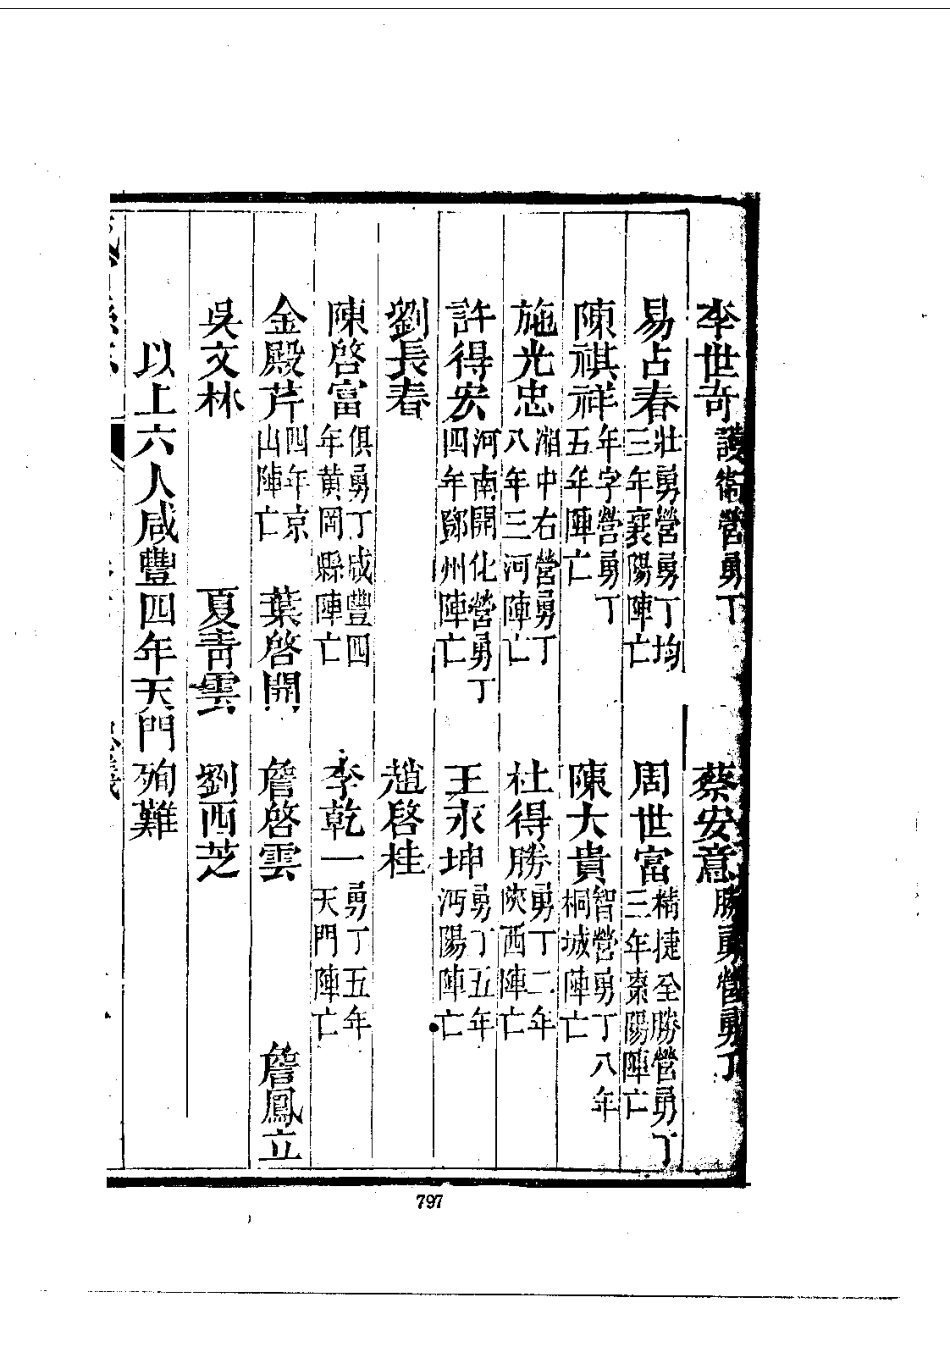 李世奇護衛營勇丁　蔡安意勝勇營勇丁
易占春壯勇營勇丁均三年襄陽陣亡　周世富精捷全勝營勇丁三年棗陽陣亡
陳祺祥年字營勇丁五年陣亡　陳大貴智營勇丁八年桐城陣亡
施光忠湘中右營勇丁八年三河陣亡　杜得勝勇丁二年陝西陣亡
許得安河南開化營勇丁四年鄧州陣亡　王永坤勇丁五年沔陽陣亡
劉長春　趙啓桂
陳啓富俱勇丁咸豐四年黃岡縣陣亡　李乾一勇丁五年天門陣亡
金殿芹四年京山陣亡　葉啓開　詹啓雲　詹鳳立
吳文林　夏青雲　劉西芝
以上六人咸豐四年天門殉難
797